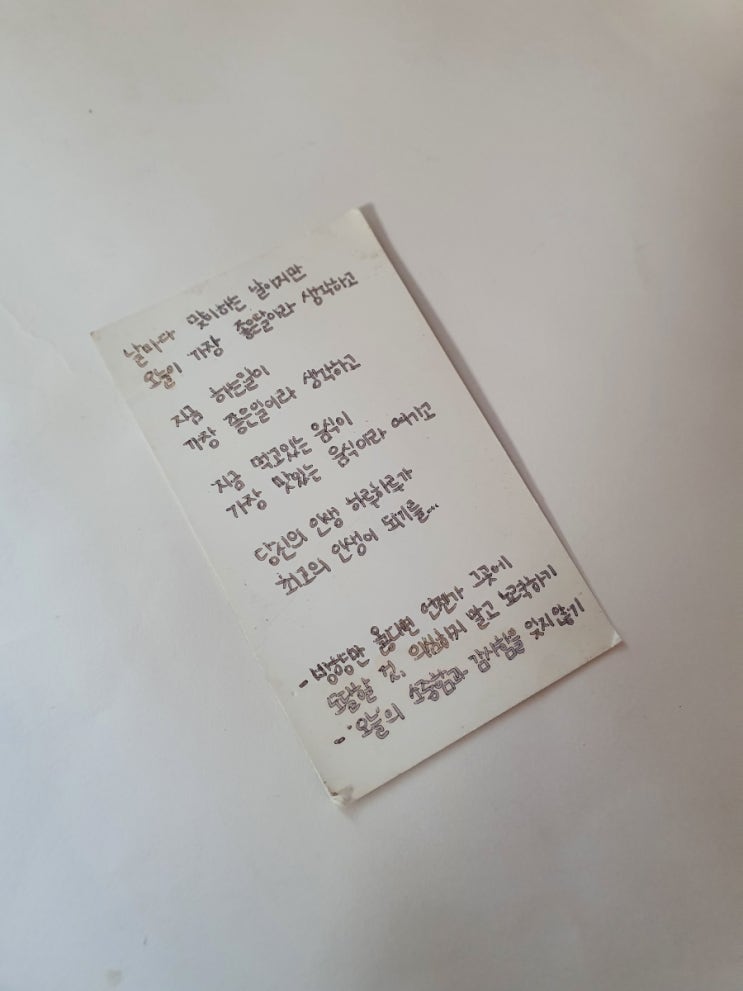 날마다 맞이하는 날이지만
오늘이 가장 좋은날이라 생각하고
지금 하는일이
가장 좋은일이라 생각하고
지금 먹고있는 음식이
가장 맛있는 음식이라 여기고
당신의 인생 하루하루가
최고의 인생이 되기를...
- 방향만 옳다면 언젠가 그곳에
도달할 것. 의심하지 말고 노력하기
- 오늘의 소중함과 감사함을 잊지 않기